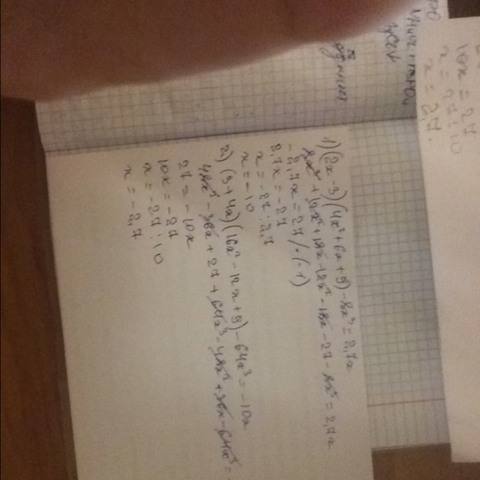 1) (2x-3)(4x²+6x+9)-8x³=2,7x
8x³+12x²+18x-12x²-18x-27-8x³=2,7x
-2,7x=27/·(-1)
2,7x=-27
x=-27:2,7
x=-10
2) (3+4x)(16x²-12x+9)-64x³=-10x
48x²-36x+27+64x³-48x²+36x-64x³=
27=-10x
10x=-27
x=-27:10
x=-2,7
10x=27
x=27:10
x=27.